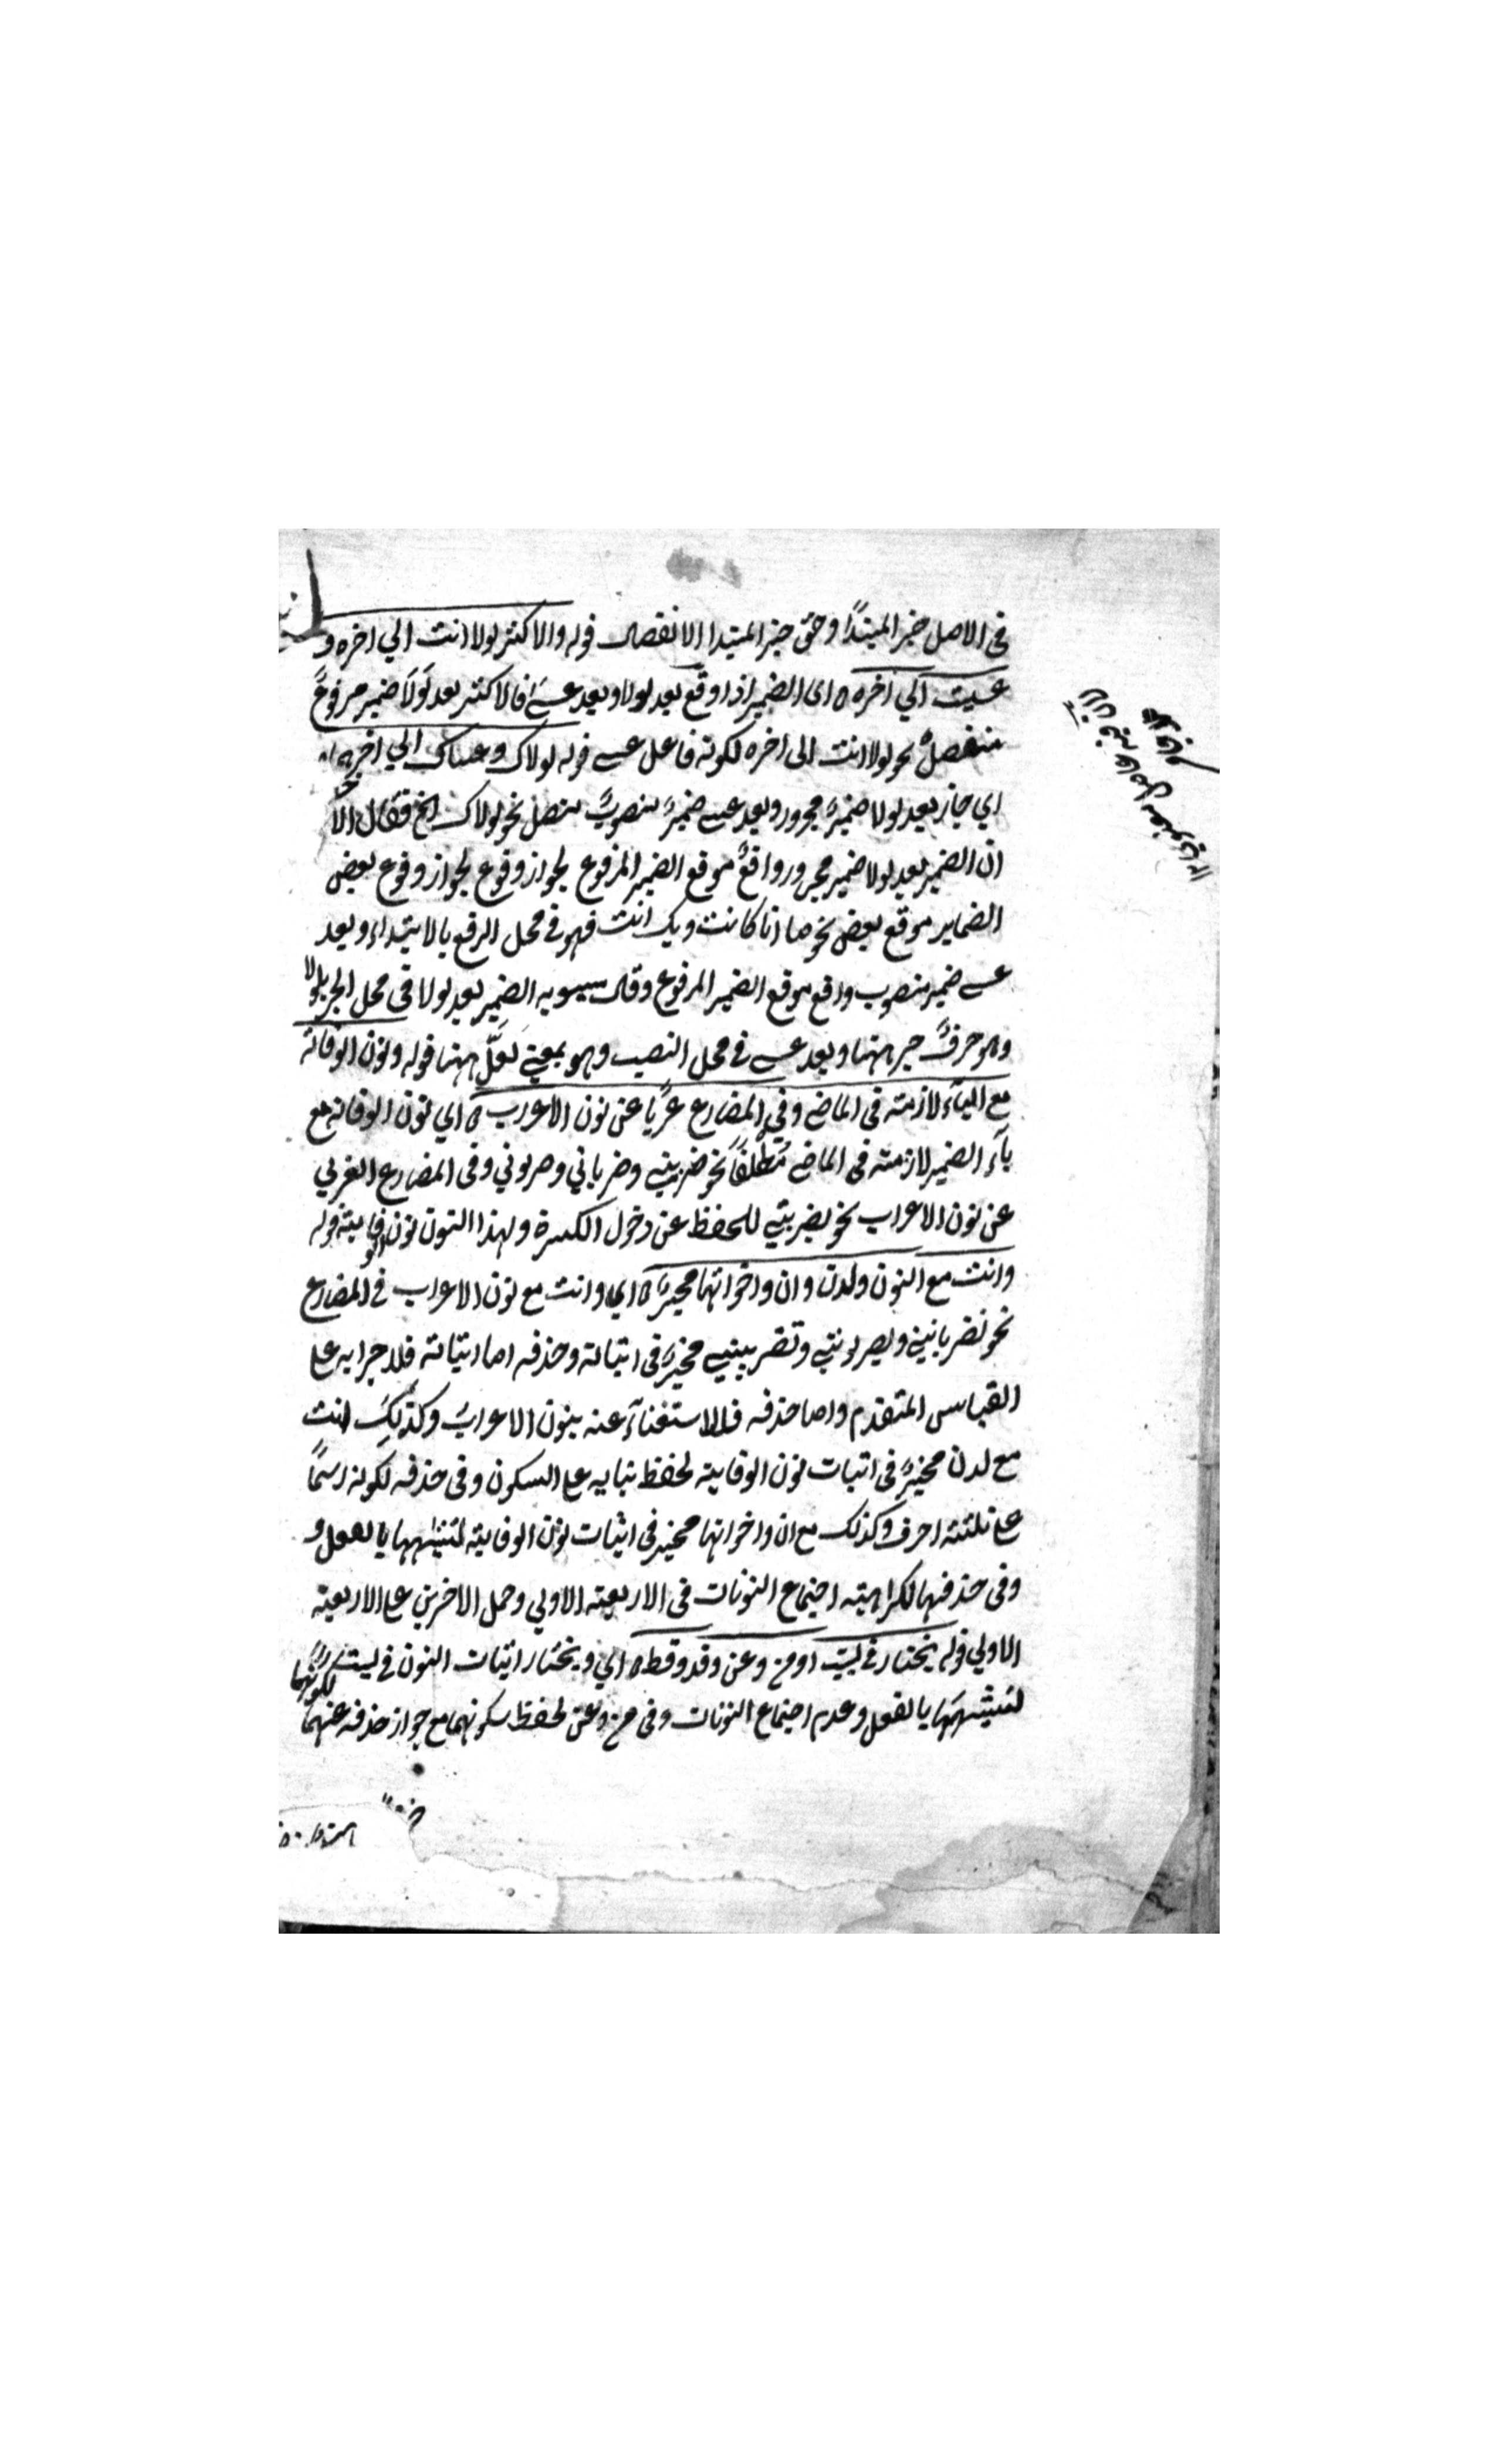 في الاصل خبر المبتدأ وحق خبر المبتدا الانفصال قوله والاكثر لولا انت الي اخره و
عسيت الي اخره ه اى الضمير اذا وقع بعد لولا وبعد عسے فالاكثر بعد لولا ضمير مرفوع
منفصل نحو لولا انت الى اخره لكونه فاعل عسے قوله لولاك وعساك الي اخره
اي جاز بعد لولا ضمير مجرور وبعد عسے ضمير منصوب متصل نحو لولاك الخ فقال
ان الضمير بعد لولا ضمير مجرور واقع موقع الضمير المرفوع لجواز وقوع لجواز وقوع بعض
الضماير موقع بعض نحو ما انا كانت وبك انت فهو في محل الرفع بالابتداء وبعد
عسے ضمير منصوب واقع موقع الضمير المرفوع وقال سيبويه الضمير بعد لولا في محل الجر بلولا
وهو حرف جر ههنا وبعد عسے في محل النصب وهو بمعنے لعل ههنا قوله ونون الوقاية
مع الياء لازمته في الماضے وفي المضارع عريا عن نون الاعراب ه اي نون الوقاية مع
ياء الضمير لازمته في الماضے مطلقا نحو ضربنے وضرباني وضربوني وفي المضارع العري
عن نون الاعراب نحو يضربنے للحفظ عن دخول الكسرة ولهذا النون نون الوقاية قوله
وانت مع النون ولدن وان واخواتها مخير ه اي وانت مع نون الاعراب في المضارع
نحو تضربانني ويضربونني وتضربيننے مخير في اثباته وحذفه اما اثباته فلاجرايه علے
القياس المتقدم واما حذفه فللاستغناء عنه بنون الاعراب وكذلك انت
مع لدن مخير في اثبات نون الوقاية لحفظ بنايه علے السكون وفي حذفه لكونه اسما
علے ثلثة احرف وكذلك مع ان واخواتها مخير في اثبات نون الوقاية لتشبيهها بالفعل و
وفي حذفها لكراهية اجتماع النونات في الاربعة الاولي وحمل الاخرين علے الاربعة
الاولي قوله يختار في ليت او من وعن وقد وقط ه اي ويختار اثبات النون في ليت
لكونها
لتشبيهها بالفعل وعدم اجتماع النونات وفي من وعن لحفظ سكونهما مع جواز حذفه عنهما